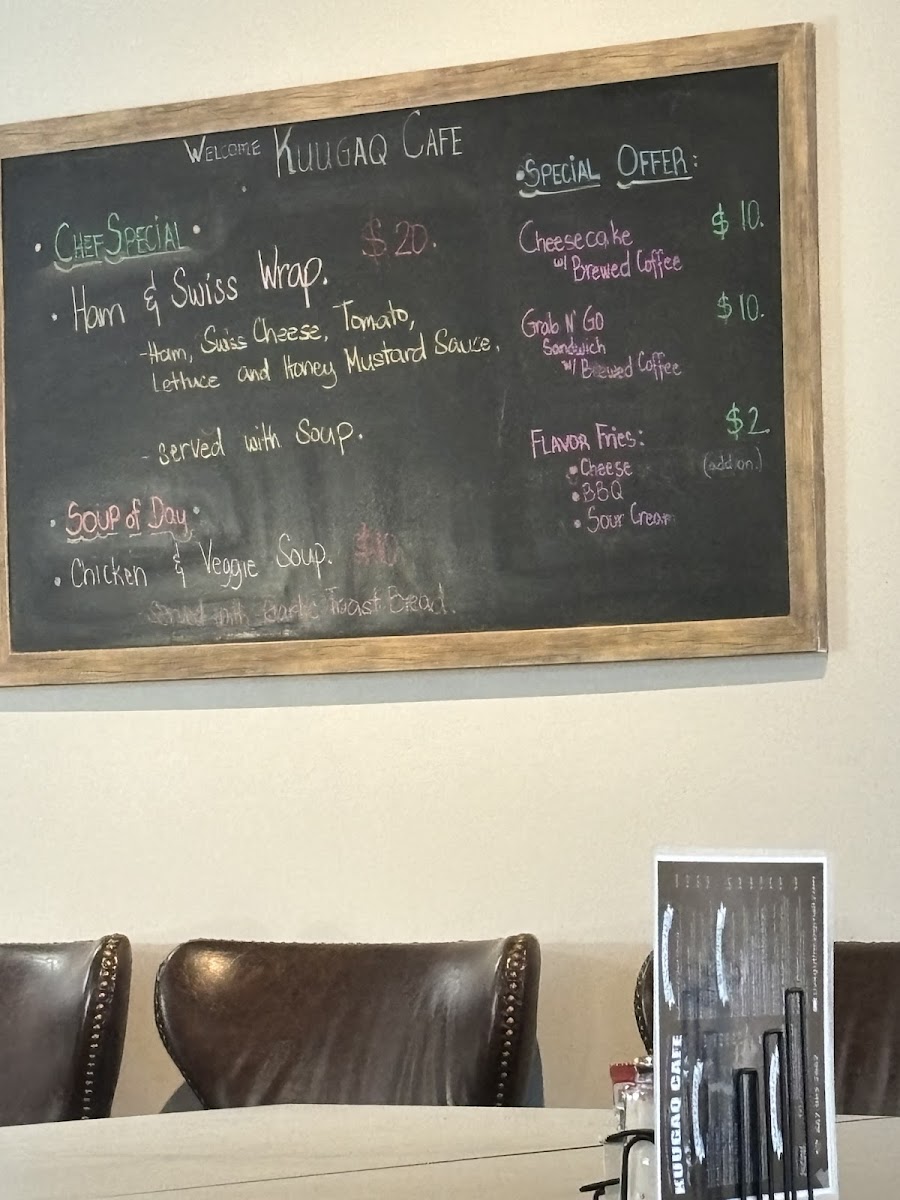 Welcome Kuugaq Cafe
• Chef Special •
$20.
• Ham & Swiss Wrap.
-Ham, Swiss Cheese, Tomato,
Lettuce and Honey Mustard Sauce.
- served with Soup.
• Soup of Day •
• Chicken & Veggie Soup. $10
- Served with Garlic Toast Bread.
•Special Offer:
Cheesecake $10.
w/ Brewed Coffee
Grab N' Go $10.
Sandwich
w/ Brewed Coffee
Flavor Fries: $2
• Cheese (add on.)
• BBQ
• Sour Cream
KUUGAQ CAFE